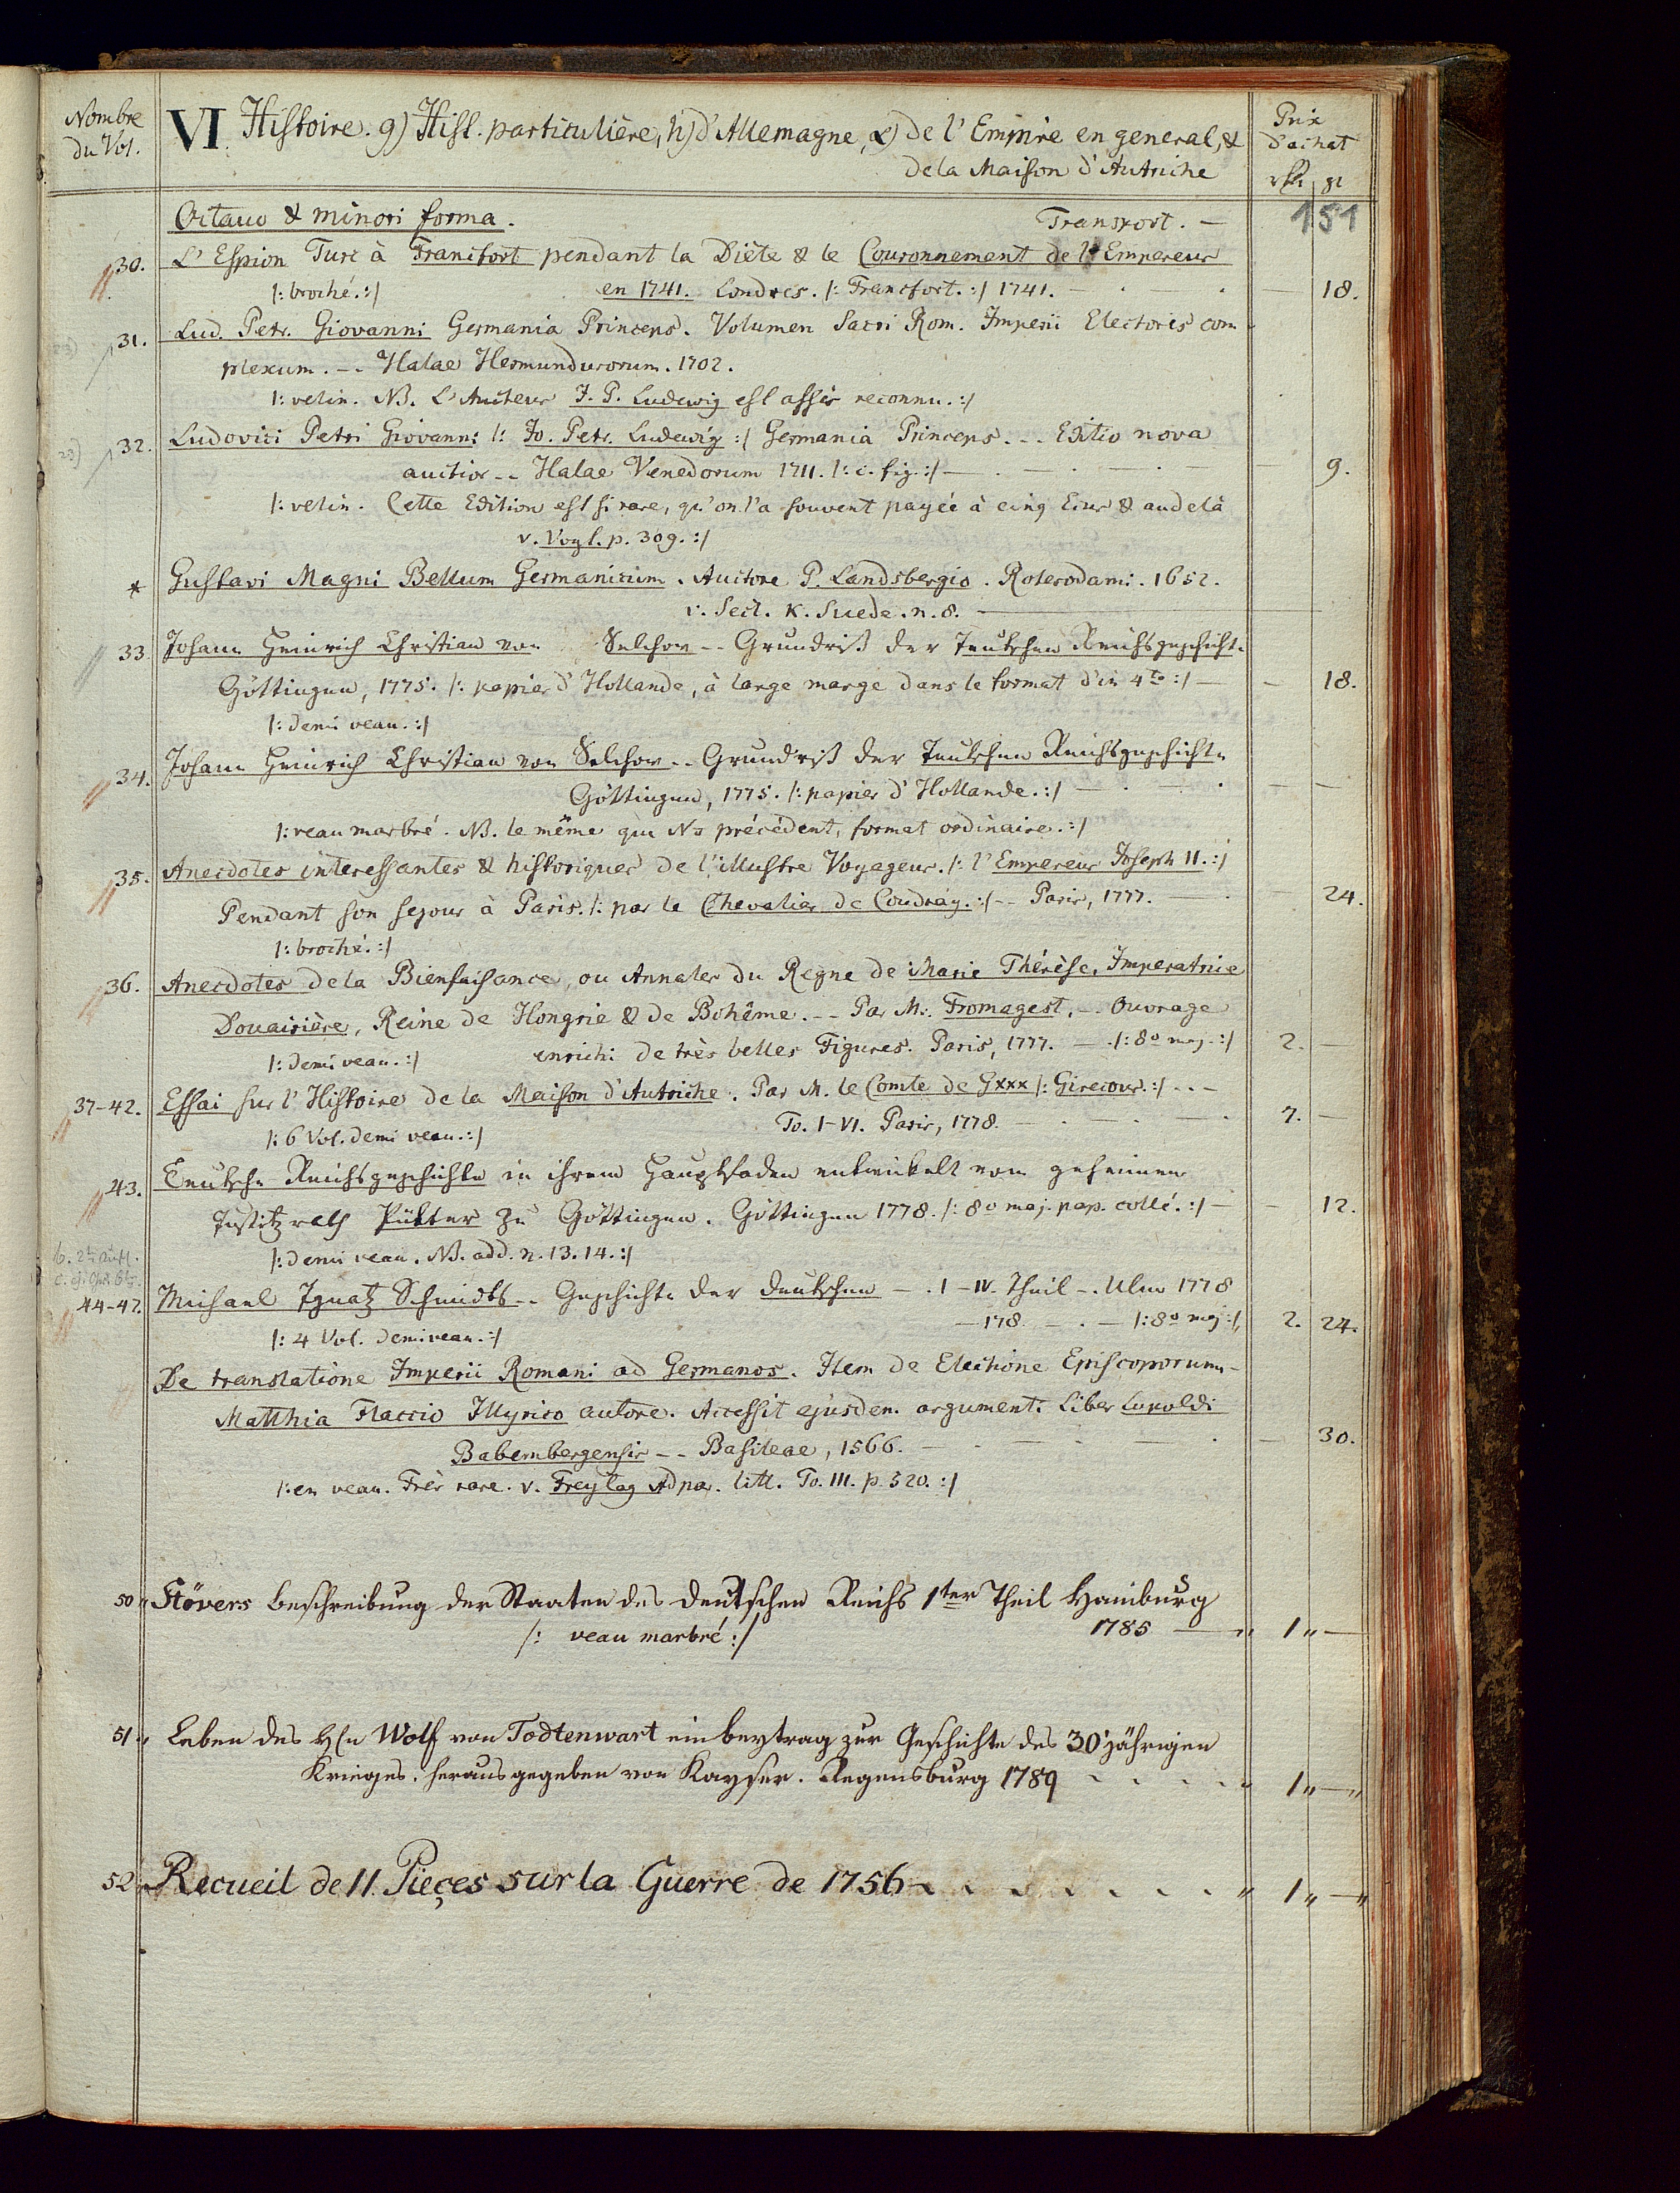 Nombre du Vol.
VI. Histoire. g) Hist. particulière, h) d'Allemagne, α) de l'Empire en general, &
de la Maison d'Autriche
Prix d'achat
rth gr
Octavo & minori forma. Transport. — 151
30. L'Espion Turc à Francfort pendant la Diète & le Couronnement de l'Empereur
/: broché. :/ en 1741. Londres. /: Francfort. :/ 1741. — 18.
31. Lud. Petr. Giovanni Germania Princeps. Volumen Sacri Rom. Imperii Electores com
plexum. -- Halae Hermundurorum. 1702.
/: velin. NB. L'Auteur J. P. Ludewig est assés reconnu. :/
32. Ludovici Petri Giovanni /: Jo. Petr. Ludewig :/ Germania Princeps. -- Editio nova
auctior -- Halae Venedorum 1711. /: c. fig. :/ — 9.
/: velin. Cette Edition est si rare, qu'on l'a souvent payée à cinq Ecus & audelà
v. Vogl. p. 309. :/
* Gustavi Magni Bellum Germanicum. Auctore P. Landsbergio. Roterodami. 1652.
v. Sect. K. Suede. n. 8. —
33. Johann Heinrich Christian von Selchow -- Grundriß der Teutschen Reichsgeschichte
Göttingen, 1775. /: papier d'Hollande, à large marge dans le format d'in 4to :/ — 18.
/: demi veau. :/
34. Johann Heinrich Christian von Selchow -- Grundriß der Teutschen Reichsgeschichte
Göttingen, 1775. /: papier d'Hollande. :/ — —
/: veau marbré. NB. le même que No précédent, format ordinaire. :/
35. Anecdotes interessantes & historiques de l'illustre Voyageur. /: l'Empereur Joseph II. :/
Pendant son sejour à Paris. /: par le Chevalier de Coudray. :/ -- Paris, 1777. — 24.
/: broché. :/
36. Anecdotes de la Bienfaisance, ou Annales du Regne de Marie Thérèse, Imperatrice
Douairière, Reine de Hongrie & de Bohême. -- Par M. Fromagest. -- Ouvrage
/: demi veau. :/ enrichi de très belles Figures. Paris, 1777. — /: 8o maj. :/ 2. —
37-42. Essai sur l'Histoire de la Maison d'Autriche. Par M. le Comte de Gxxx /: Girecour. :/ ---
/: 6 Vol. demi veau. :/ To. I-VI. Paris, 1778. — 7. —
43. Teutsche Reichsgeschichte in ihrem Hauptfaden entwickelt vom geheimen
Justitzrath Pütter zu Göttingen. Göttingen 1778. /: 8o maj. pap. collé. :/ — 12.
/: demi veau. NB. add. n. 13. 14. :/
44-47. Michael Ignatz Schmidts -- Geschichte der Deutschen — . I-IV. Theil -. Ulm 1778
/: 4 Vol. demi veau. :/ — 178 — . — /: 8o maj :/ 2. 24.
De translatione Imperii Romani ad Germanos. Item de Electione Episcoporum -
Matthia Flaccio Illyrico autore. Accessit ejusdem argumenti Liber Lupoldi
Babembergensis -- Basileae, 1566. — 30.
/: en veau. Très rare. v. Freytag Adpar. litt. To. III. p. 520. :/
50 Stövers Beschreibung der Staaten des deutschen Reichs 1ter Theil Hamburg
/: veau marbré :/ 1785 — " 1 " —
51 " Leben des H(n Wolf von Todtenwart ein beytrag zur Geschichte des 30 jährigen
Krieges. herausgegeben von Kayser. Regensburg 1789 - - - - - " 1 " — "
52 Recueil de 11. Pieçes sur la Guerre de 1756 - - - - - - - " 1 " — "